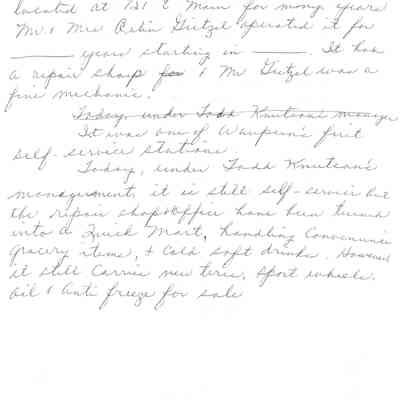 located at 721 E Main for many years
Mr. & Mrs Rubin Dietzel operated it for
________ years starting in ______. It has
a repair shop for & Mr Dietzel was a
fine mechanic.
Today, under Todd Knutson's manager
It was one of Waupun's first
self-service stations.
Today, under Todd Knutson's
management, it is still self-service but
the repair shop & office have been turned
into a Quick Mart, handling Convenience
grocery items, & Cold soft drinks. However
it still Carries new tires, sport wheels,
oil & Anti freeze for sale